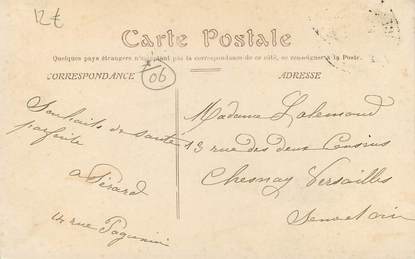 12€
Carte Postale
Quelques pays étrangers n'acceptant pas la correspondance de ce côté, se renseigner à la Poste.
CORRESPONDANCE
06
ADRESSE
Souhaits de santé
parfaite
a Pérard
14 rue Paganini
Madame Lalemand
13 rue des deux Cousins
Chesnay Versailles
Seine et oise